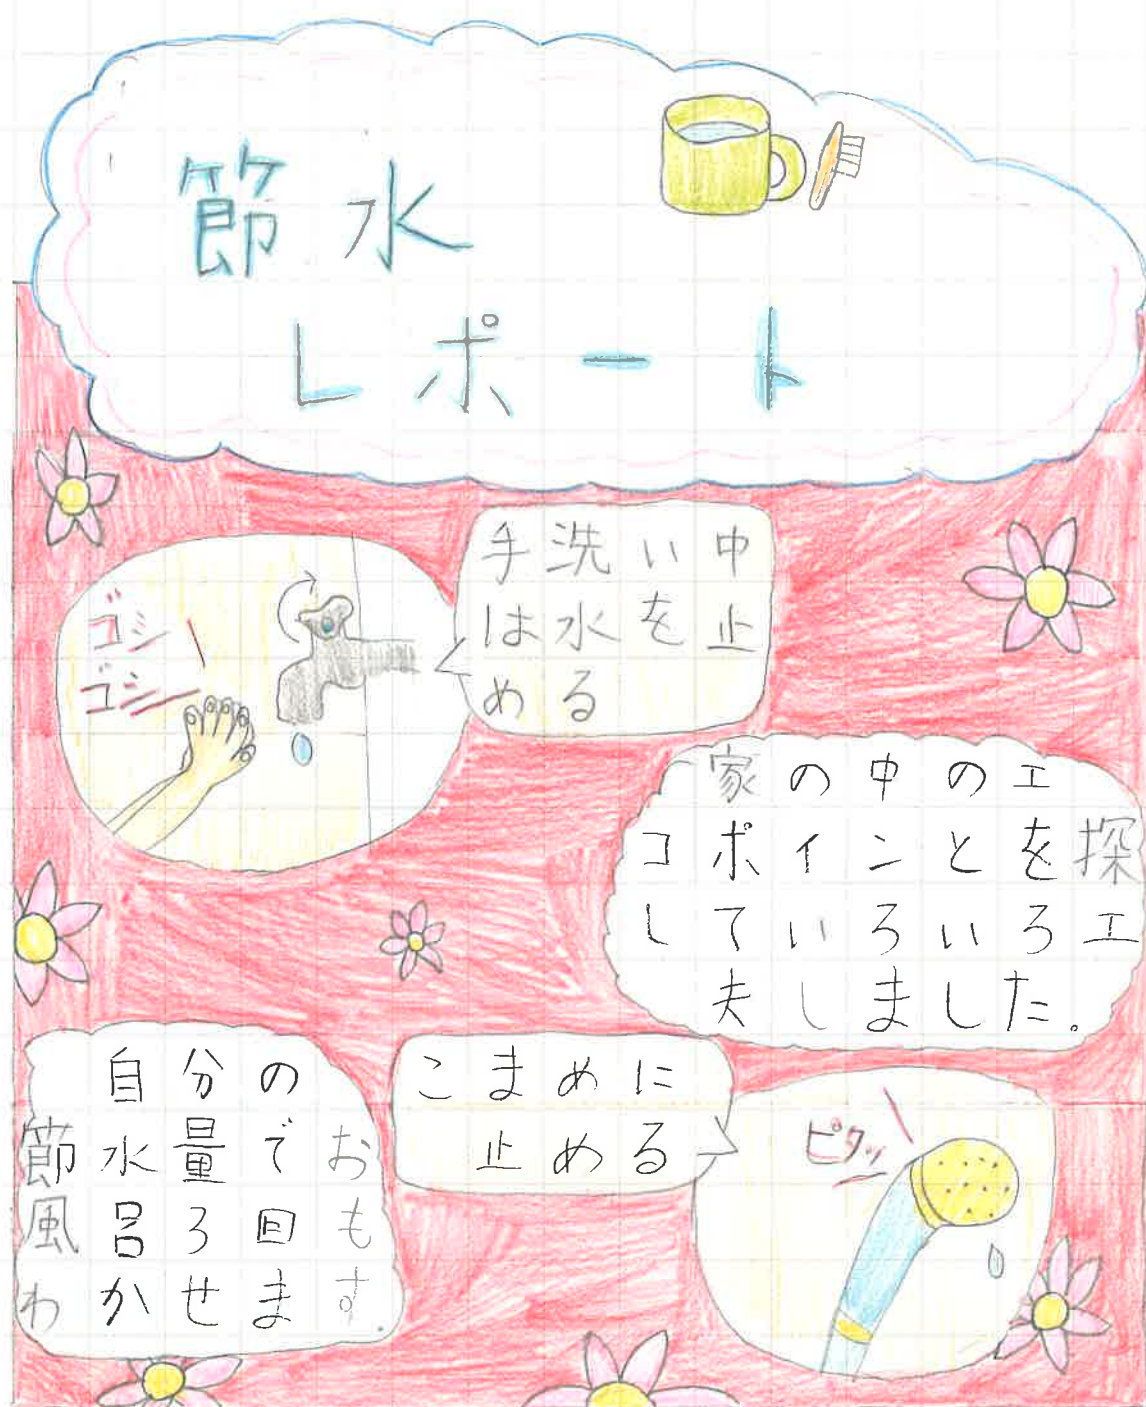 節水
レポート
手洗い中
は水を止
める
ゴシ
ゴシ
家の中のエ
コポインとを探
していろいろ工
夫しました。
自分の
節水量でお
風呂3回も
わかせます。
こまめに
止める
ピタッ